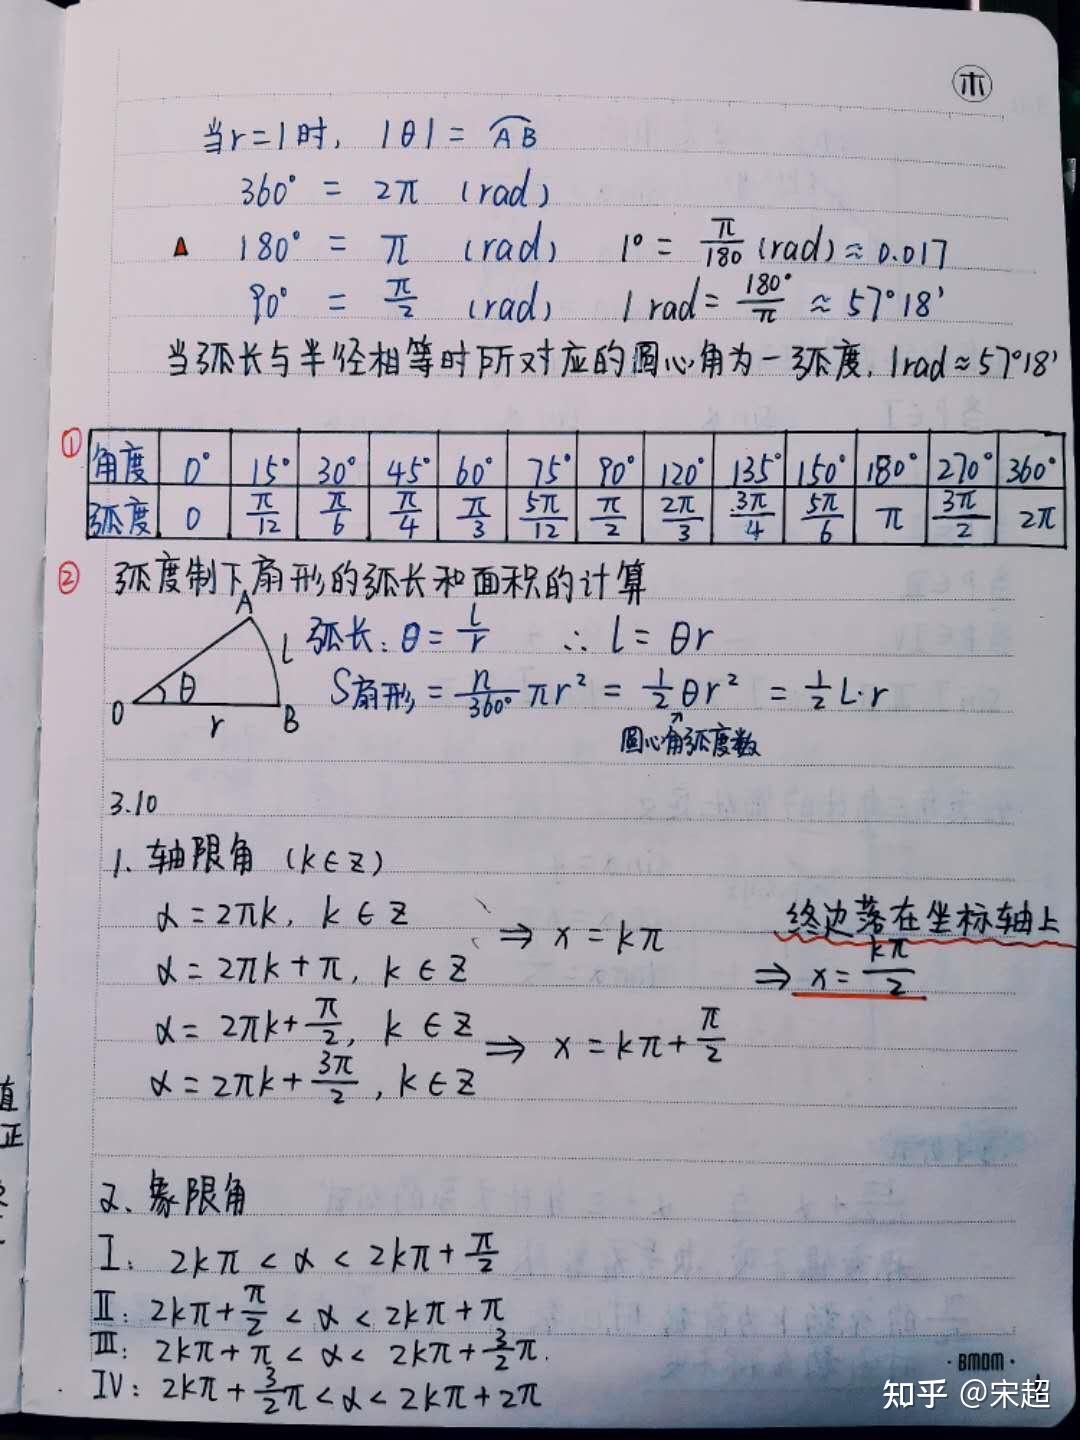 木
当r=1时, |θ| = A͡B
360° = 2π (rad)
180° = π (rad) 1° = π/180 (rad) ≈ 0.017
90° = π/2 (rad) 1 rad = 180°/π ≈ 57°18'
当弧长与半径相等时所对应的圆心角为一弧度, 1rad≈57°18'
① 角度 0° 15° 30° 45° 60° 75° 90° 120° 135° 150° 180° 270° 360°
弧度 0 π/12 π/6 π/4 π/3 5π/12 π/2 2π/3 3π/4 5π/6 π 3π/2 2π
② 弧度制下扇形的弧长和面积的计算
A
O θ r B l
弧长: θ = l/r ∴ l = θr
S扇形 = n/360° πr² = 1/2 θr² = 1/2 L·r
圆心角弧度数
3.10
1. 轴限角 (k∈Z)
α = 2πk, k∈Z
α = 2πk+π, k∈Z
⇒ x = kπ
α = 2πk+π/2, k∈Z
α = 2πk+3π/2, k∈Z
⇒ x = kπ+π/2
终边落在坐标轴上
⇒ x = kπ/2
2、象限角
I: 2kπ < α < 2kπ+π/2
II: 2kπ+π/2 < α < 2kπ+π
III: 2kπ+π < α < 2kπ+3/2π.
IV: 2kπ+3/2π < α < 2kπ+2π
值
正
·BMDM·
知乎 @宋超